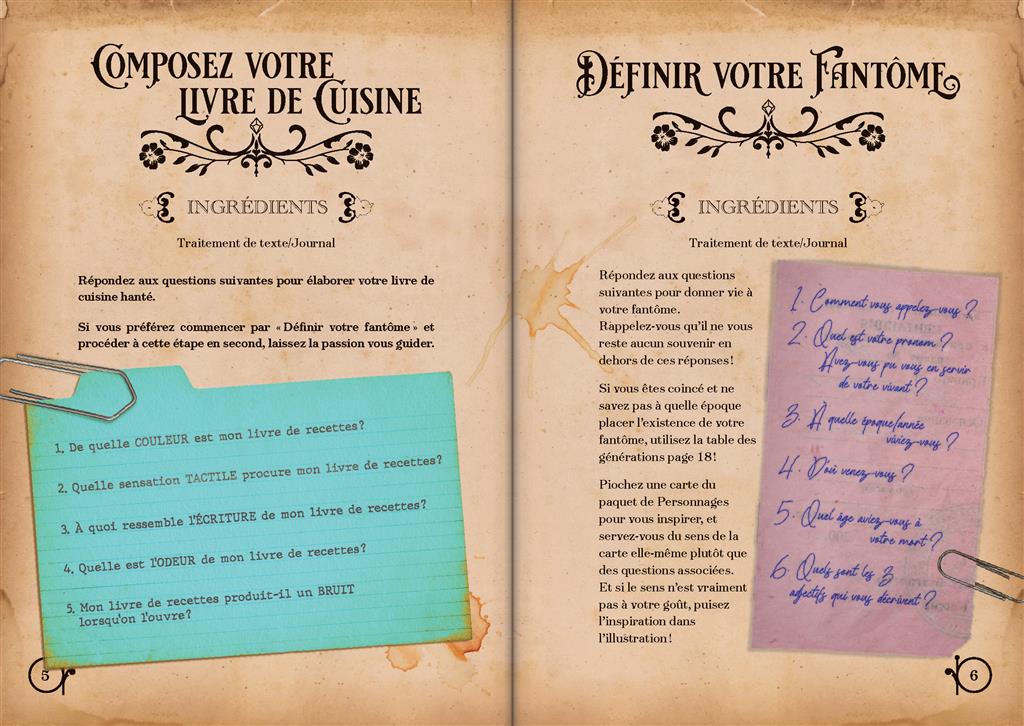 Composez votre
livre de Cuisine
INGRÉDIENTS
Traitement de texte/Journal
Répondez aux questions suivantes pour élaborer votre livre de
cuisine hanté.
Si vous préférez commencer par « Définir votre fantôme » et
procéder à cette étape en second, laissez la passion vous guider.
1. De quelle COULEUR est mon livre de recettes?
2. Quelle sensation TACTILE procure mon livre de recettes?
3. À quoi ressemble l'ÉCRITURE de mon livre de recettes?
4. Quelle est l'ODEUR de mon livre de recettes?
5. Mon livre de recettes produit-il un BRUIT
lorsqu'on l'ouvre?
5
Définir votre Fantôme
INGRÉDIENTS
Traitement de texte/Journal
Répondez aux questions
suivantes pour donner vie à
votre fantôme.
Rappelez-vous qu'il ne vous
reste aucun souvenir en
dehors de ces réponses !
Si vous êtes coincé et ne
savez pas à quelle époque
placer l'existence de votre
fantôme, utilisez la table des
générations page 18 !
Piochez une carte du
paquet de Personnages
pour vous inspirer, et
servez-vous du sens de la
carte elle-même plutôt que
des questions associées.
Et si le sens n'est vraiment
pas à votre goût, puisez
l'inspiration dans
l'illustration !
1. Comment vous appelez-vous ?
2. Quel est votre pronom ?
Avez-vous pu vous en servir
de votre vivant ?
3. À quelle époque/année
viviez-vous ?
4. D'où venez-vous ?
5. Quel âge aviez-vous à
votre mort ?
6. Quels sont les 3
adjectifs qui vous décrivent ?
6